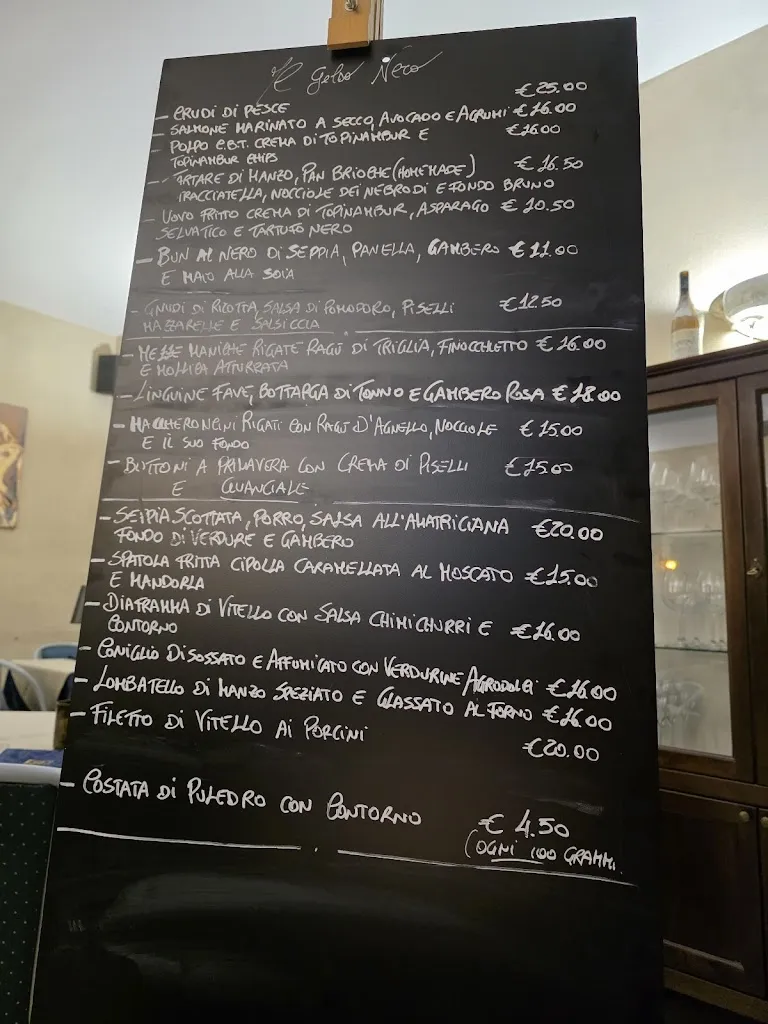 Il Gelso Nero
- CRUDI DI PESCE €25.00
- SALMONE MARINATO A SECCO, AVOCADO E AGRUMI €16.00
- POLPO C.B.T. CREMA DI TOPINAMBUR E €16.00
TOPINAMBUR CHIPS
- TARTARE DI MANZO, PAN BRIOCHE (HOMEMADE) €16.50
STRACCIATELLA, NOCCIOLE DEI NEBRODI E FONDO BRUNO
- UOVO FRITTO CREMA DI TOPINAMBUR, ASPARAGO €10.50
SELVATICO E TARTUFO NERO
- BUN AL NERO DI SEPPIA, PANELLA, GAMBERO €11.00
E MAIO ALLA SOIA
- GNUDI DI RICOTTA, SALSA DI POMODORO, PISELLI €12.50
MAZZARELLE E SALSICCIA
- MEZZE MANICHE RIGATE RAGÙ DI TRIGLIA, FINOCCHIETTO €16.00
E MOLLICA ATTURRATA
- LINGUINE FAVE, BOTTARGA DI TONNO E GAMBERO ROSA €18.00
- MACCHERONCINI RIGATI CON RAGÙ D'AGNELLO, NOCCIOLE €15.00
E IL SUO FONDO
- BUTTONI A PRIMAVERA CON CREMA DI PISELLI €15.00
E GUANCIALE
- SEPPIA SCOTTATA, PORRO, SALSA ALL'AMATRICIANA €20.00
FONDO DI VERDURE E GAMBERO
- SPATOLA FRITTA CIPOLLA CARAMELLATA AL MOSCATO €15.00
E MANDORLA
- DIAFRAMMA DI VITELLO CON SALSA CHIMICHURRI E €16.00
CONTORNO
- CONIGLIO DISOSSATO E AFFUMICATO CON VERDURINE AGRODOLCI €16.00
- LOMBATELLO DI MANZO SPEZIATO E GLASSATO AL FORNO €16.00
- FILETTO DI VITELLO AI PORCINI €20.00
- COSTATA DI PULEDRO CON CONTORNO €4.50
(OGNI 100 GRAMMI.